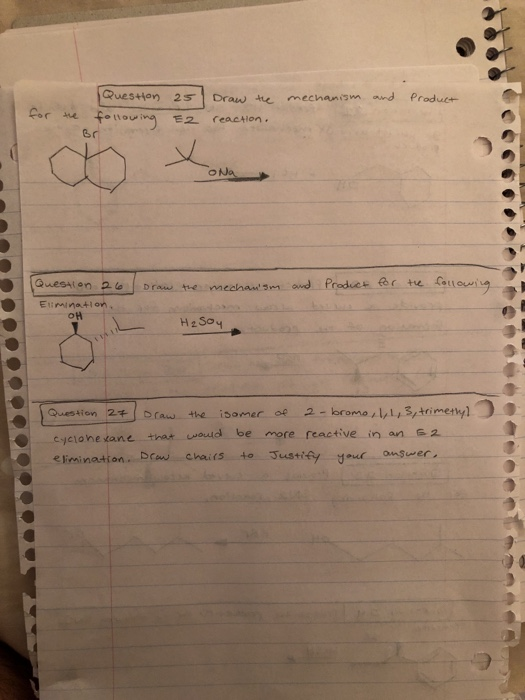 Question 25 Draw the mechanism and Product
for the following E2 reaction.
Br
ONa
Question 26 Draw the mechanism and Product for the following
Elimination.
OH
H2SO4
Question 27 Draw the isomer of 2-bromo,1,1,3,trimethyl
cyclohexane that would be more reactive in an E2
elimination. Draw chairs to Justify your answer.